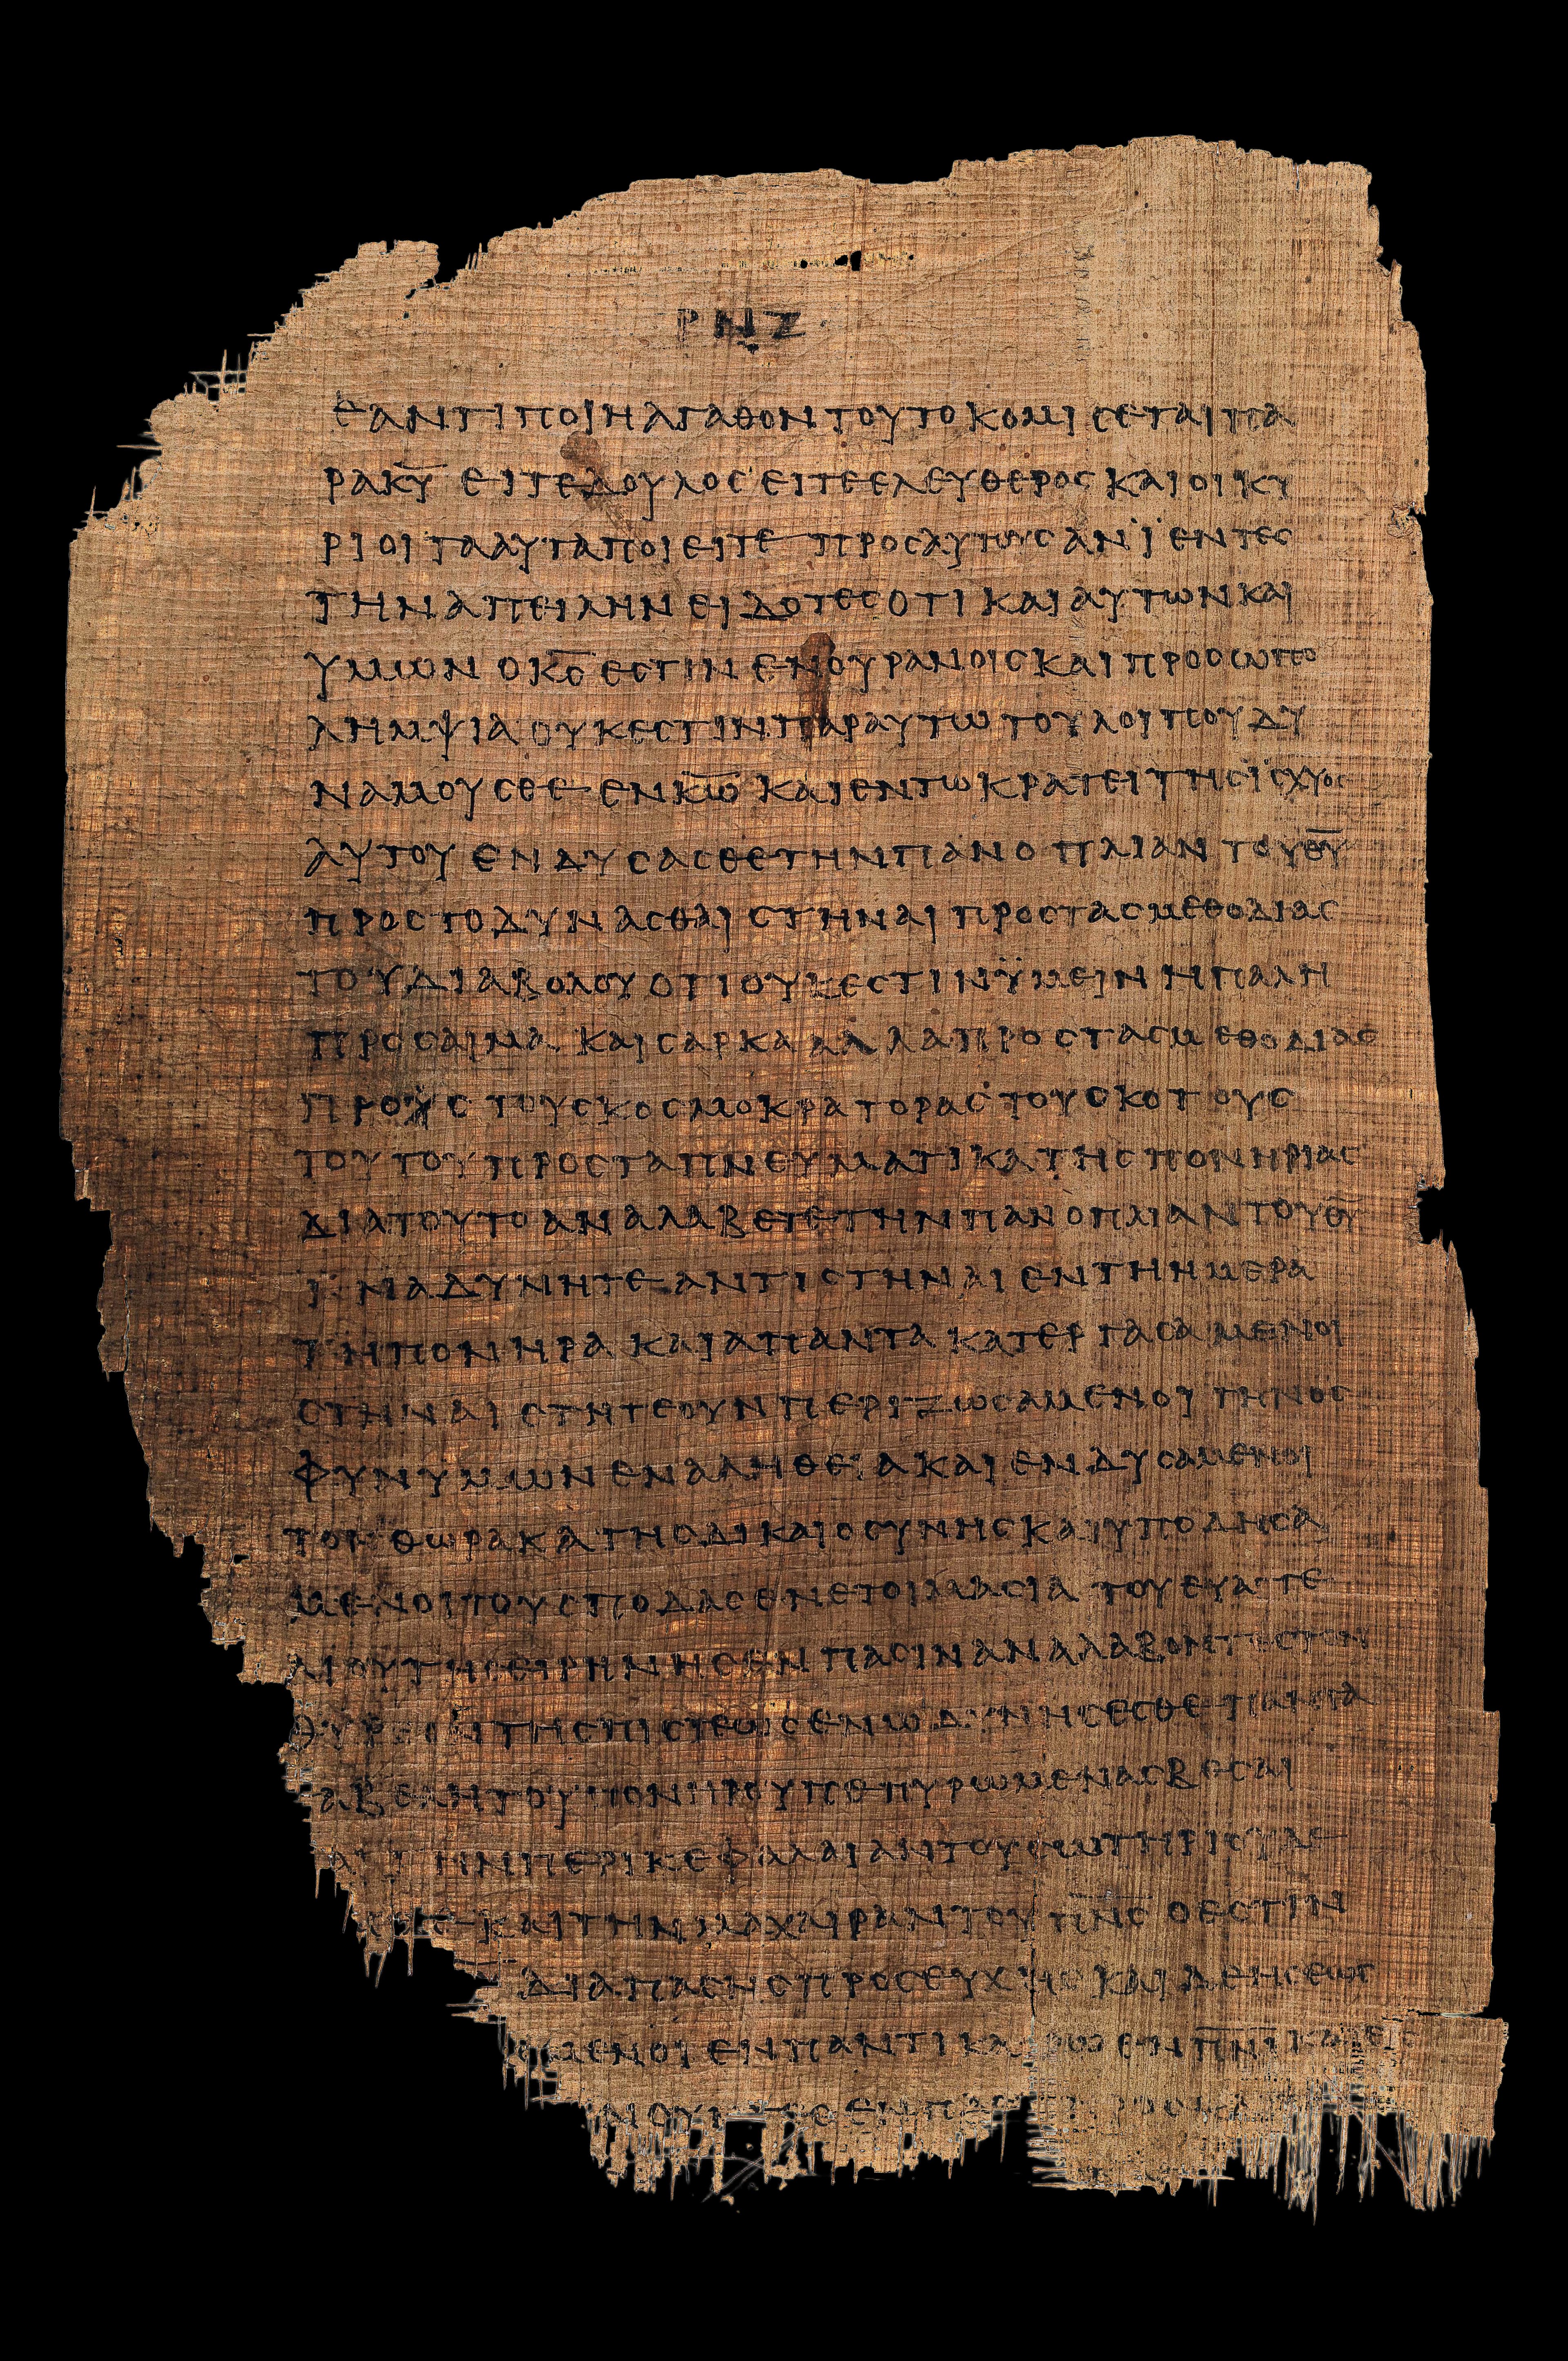 ΡΝΖ
ΕΑΝΤΙΠΟΙΗΑΓΑΘΟΝΤΟΥΤΟΚΟΜΙϹΕΤΑΙΠΑ
ΡΑΚ̅Υ̅ ΕΙΤΕΔΟΥΛΟϹΕΙΤΕΕΛΕΥΘΕΡΟϹΚΑΙΟΙΚΥ
ΡΙΟΙΤΑΑΥΤΑΠΟΙΕΙΤΕΠΡΟϹΑΥΤΟΥϹΑΝΙΕΝΤΕϹ
ΤΗΝΑΠΕΙΛΗΝΕΙΔΟΤΕϹΟΤΙΚΑΙΑΥΤΩΝΚΑΙ
ΥΜΩΝΟΚ̅Ϲ̅ΕϹΤΙΝΕΝΟΥΡΑΝΟΙϹΚΑΙΠΡΟϹΩΠΟ
ΛΗΜΨΙΑΟΥΚΕϹΤΙΝΠΑΡΑΥΤΩΤΟΥΛΟΙΠΟΥΔΥ
ΝΑΜΟΥϹΘΕΕΝΚ̅Ω̅ΚΑΙΕΝΤΩΚΡΑΤΕΙΤΗϹΪϹΧΥΟϹ
ΑΥΤΟΥΕΝΔΥϹΑϹΘΕΤΗΝΠΑΝΟΠΛΙΑΝΤΟΥΘ̅Υ̅
ΠΡΟϹΤΟΔΥΝΑϹΘΑΙϹΤΗΝΑΙΠΡΟϹΤΑϹΜΕΘΟΔΙΑϹ
ΤΟΥΔΙΑΒΟΛΟΥΟΤΙΟΥΚΕϹΤΙΝΫΜΕΙΝΗΠΑΛΗ
ΠΡΟϹΑΙΜΑΚΑΙϹΑΡΚΑΑΛΛΑΠΡΟϹΤΑϹΜΕΘΟΔΙΑϹ
ΠΡΟΥϹΤΟΥϹΚΟϹΜΟΚΡΑΤΟΡΑϹΤΟΥϹΚΟΤΟΥϹ
ΤΟΥΤΟΥΠΡΟϹΤΑΠΝΕΥΜΑΤΙΚΑΤΗϹΠΟΝΗΡΙΑϹ
ΔΙΑΤΟΥΤΟΑΝΑΛΑΒΕΤΕΤΗΝΠΑΝΟΠΛΙΑΝΤΟΥΘ̅Υ̅
ΪΝΑΔΥΝΗΤΕΑΝΤΙϹΤΗΝΑΙΕΝΤΗΗΜΕΡΑ
ΤΗΠΟΝΗΡΑΚΑΙΑΠΑΝΤΑΚΑΤΕΡΓΑϹΑΜΕΝΟΙ
ϹΤΗΝΑΙϹΤΗΤΕΟΥΝΠΕΡΙΖΩϹΑΜΕΝΟΙΤΗΝΟϹ
ΦΥΝΥΜΩΝΕΝΑΛΗΘΕΙΑΚΑΙΕΝΔΥϹΑΜΕΝΟΙ
ΤΟΝΘΩΡΑΚΑΤΗϹΔΙΚΑΙΟϹΥΝΗϹΚΑΙΥΠΟΔΗϹΑ
ΜΕΝΟΙΤΟΥϹΠΟΔΑϹΕΝΕΤΟΙΜΑϹΙΑΤΟΥΕΥΑΓΓΕ
ΛΙΟΥΤΗϹΕΙΡΗΝΗϹΕΝΠΑϹΙΝΑΝΑΛΑΒΟΝΤΕϹΤΟΝ
ΘΥΡΕΟΝΤΗϹΠΙϹΤΕΩϹΕΝΩΔΥΝΗϹΕϹΘΕΠΑΝΤΑ
ΤΑΒΕΛΗΤΟΥΠΟΝΗΡΟΥΠΕΠΥΡΩΜΕΝΑϹΒΕϹΑΙ
ΚΑΙΤΗΝΠΕΡΙΚΕΦΑΛΑΙΑΝΤΟΥϹΩΤΗΡΙΟΥΔΕ
ΚΑΙΤΗΝΜΑΧΑΙΡΑΝΤΟΥΠ̅Ν̅Ϲ̅ΟΕϹΤΙΝ
ΔΙΑΠΑϹΗϹΠΡΟϹΕΥΧΗϹΚΑΙΔΕΗϹΕΩϹ
ΟΜΕΝΟΙΕΝΠΑΝΤΙΚΑΙΡΩΕΝΠ̅Ν̅Ι̅ΚΑΙΕΙϹ